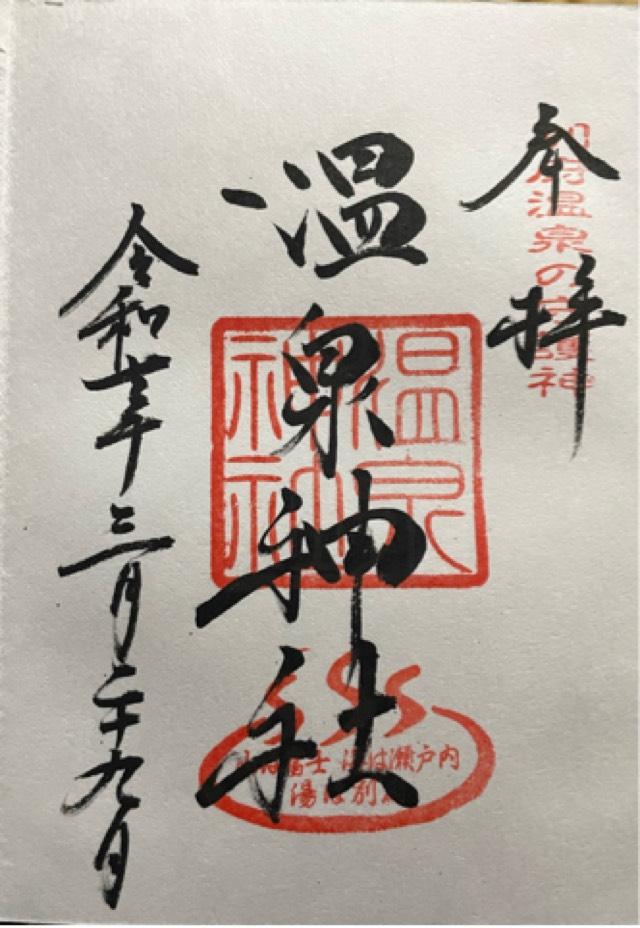 奉拝
別府温泉の守護神
温泉神社
温泉
神社
山は富士 海は瀬戸内
湯は別府
令和七年三月二十九日